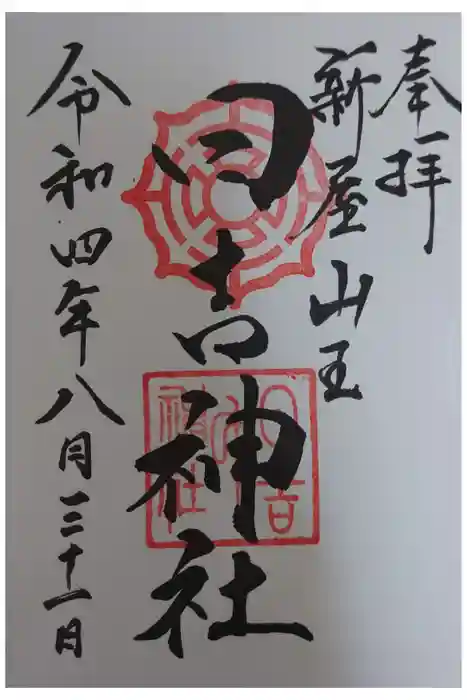 奉拝
新屋山王
日吉神社
令和四年八月三十一日
日吉神社